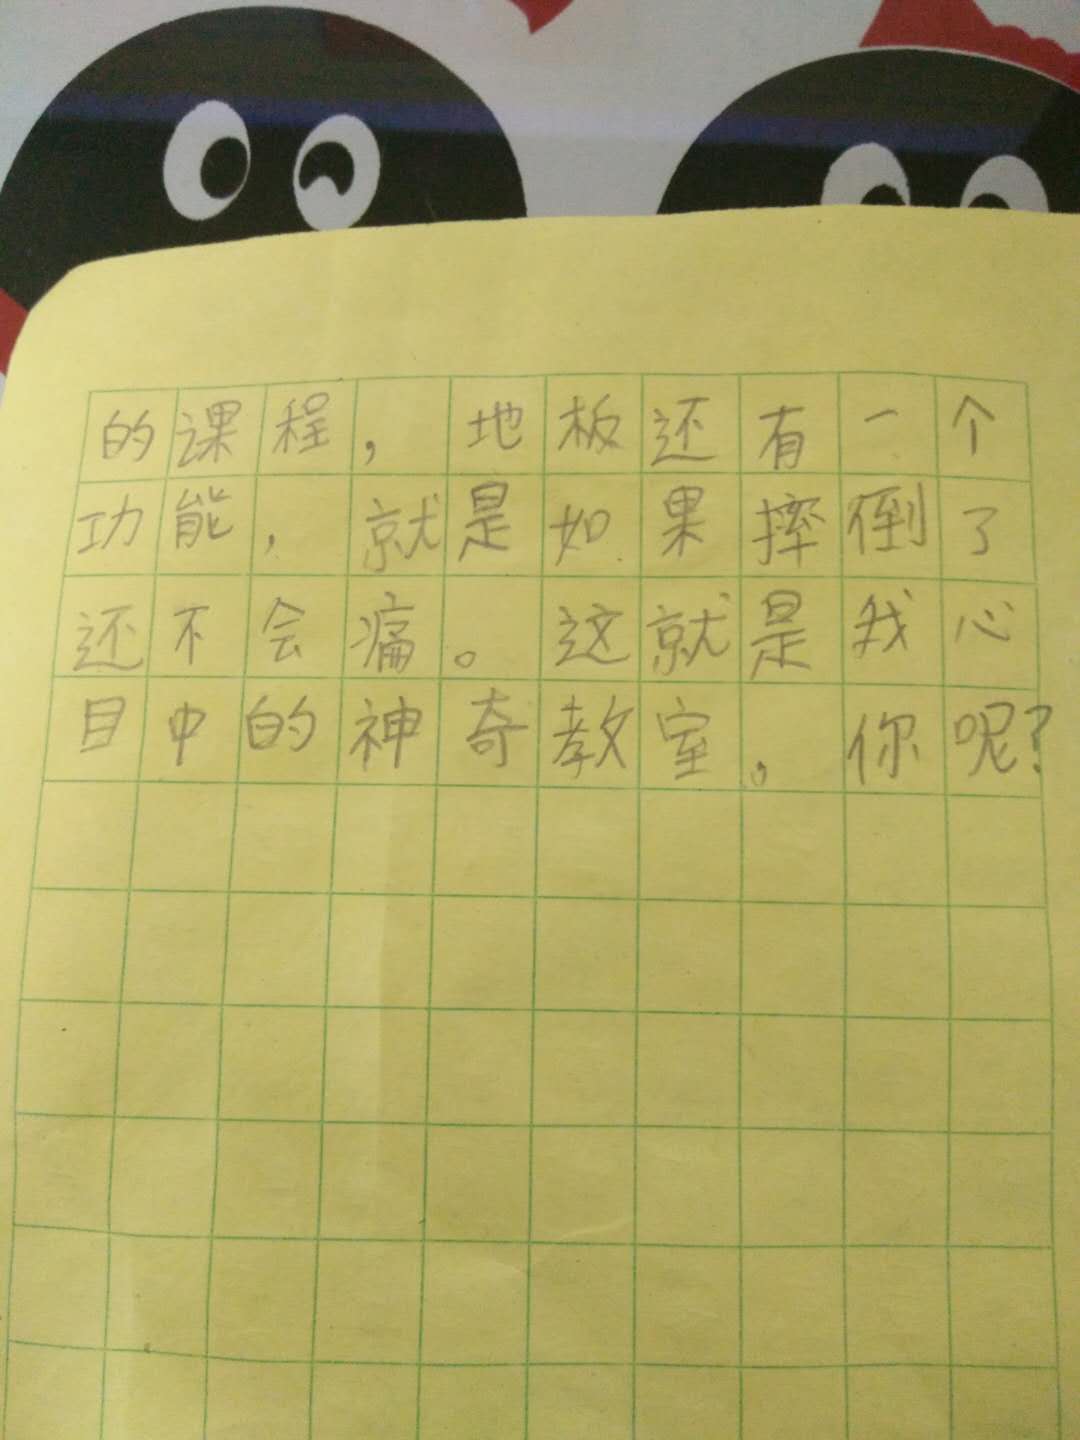 的课程，地板还有一个
功能，就是如果摔倒了
还不会痛。这就是我心
目中的神奇教室，你呢？